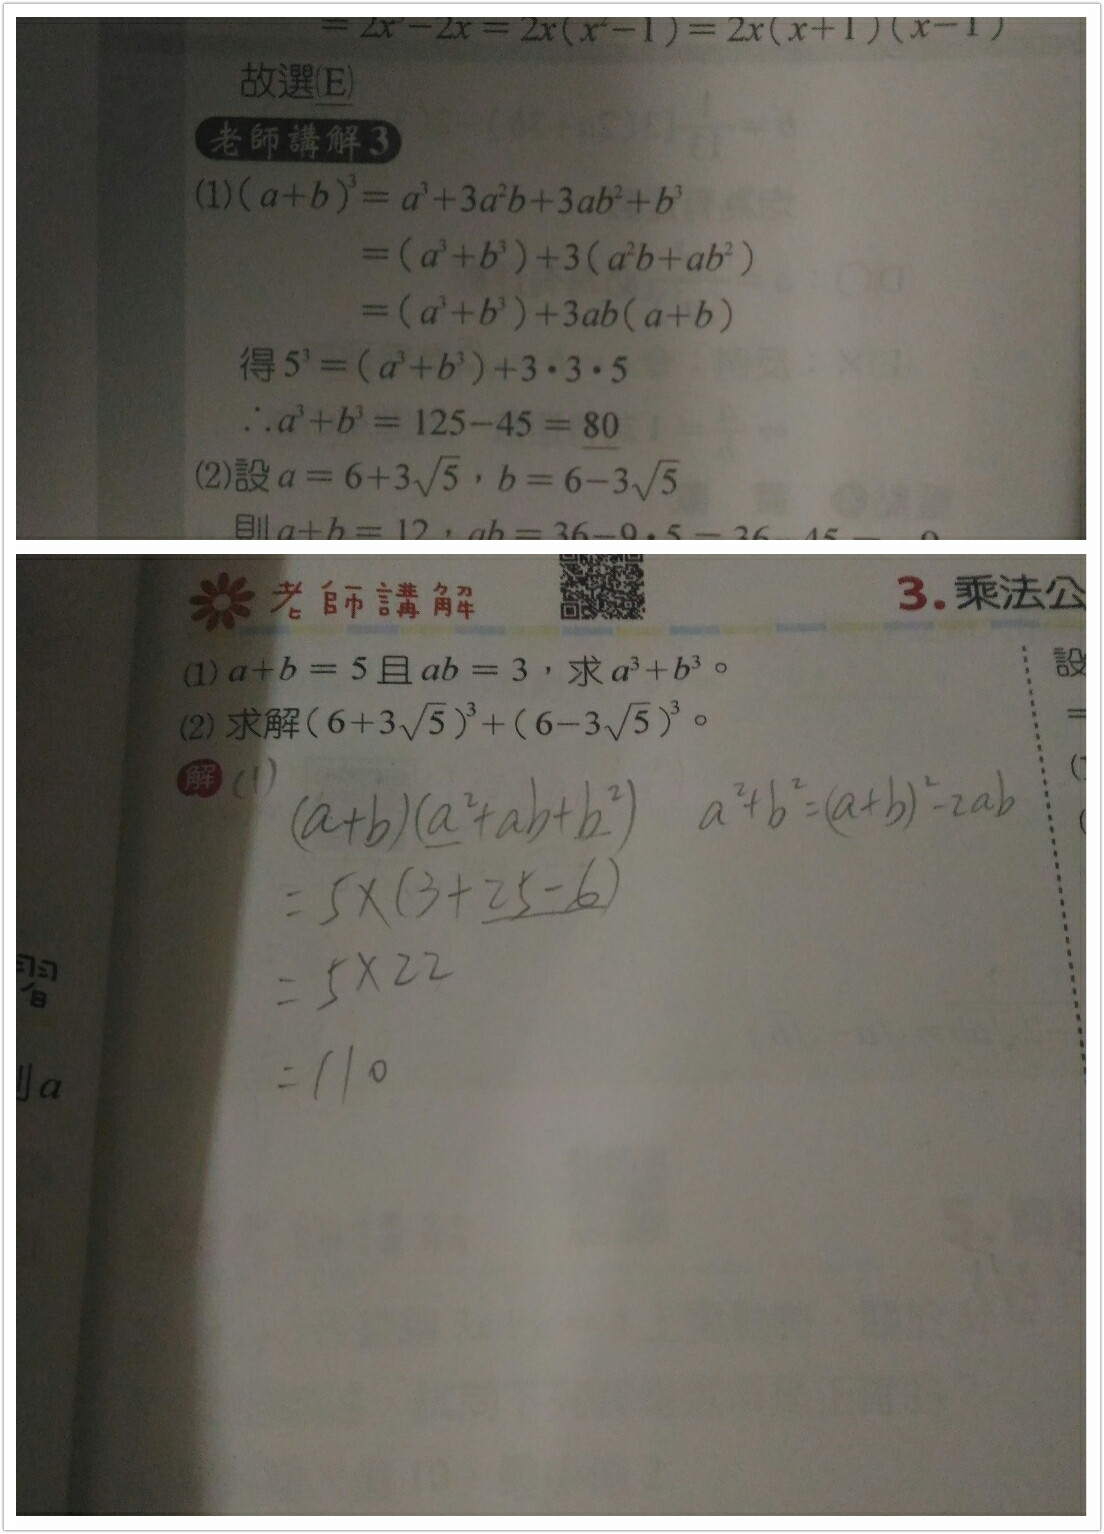 = 2x³−2x = 2x(x²−1) = 2x(x+1)(x−1)
故選(E)
老師講解3
(1)(a+b)³ = a³+3a²b+3ab²+b³
=(a³+b³)+3(a²b+ab²)
=(a³+b³)+3ab(a+b)
得5³=(a³+b³)+3•3•5
∴a³+b³ = 125−45 = 80
(2)設a = 6+3√5，b = 6−3√5
則a+b = 12，ab = 36−9•5 = 36−45 = −9
老師講解
3.乘法公
(1) a+b = 5且ab = 3，求a³+b³。
(2) 求解(6+3√5)³+(6−3√5)³。
設
=
解 (1)
(a+b)(a²+ab+b²) a²+b²=(a+b)²−2ab
= 5×(3+25−6)
= 5×22
= 110
習
則a